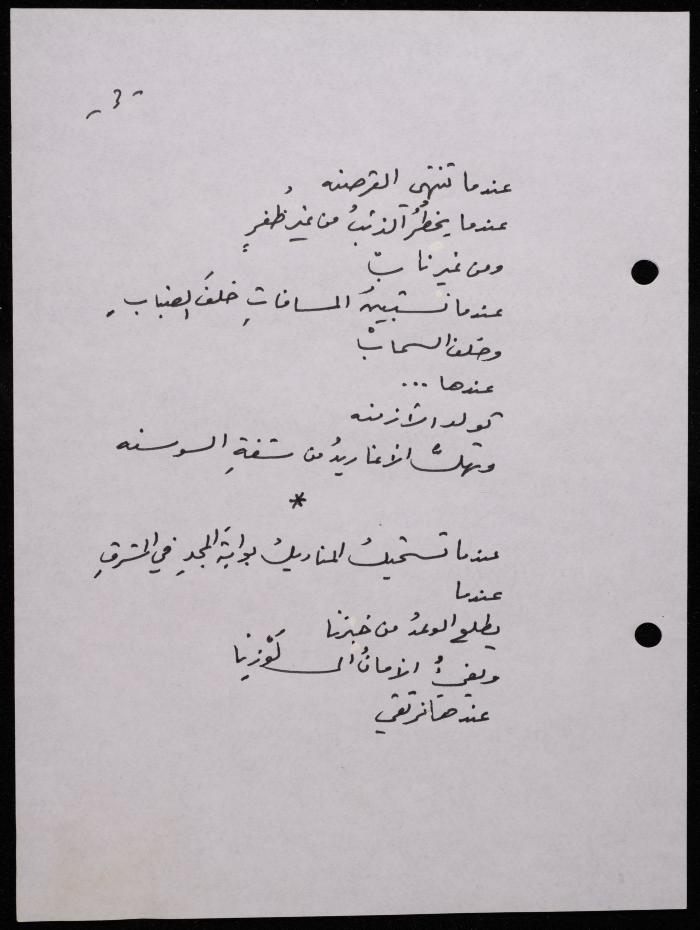 - 3 -
عندما تنتهي القرصنه
عندما يخطُرُ الذئبُ من غير ظفرٍ
ومن غير نابْ
عندما تستبينُ المسافاتِ خلفَ الضبابِ
وخلف السحابْ
عندها ...
تولد الأزمنه
وتهلّ الأغاريدُ من شفةِ السوسنه
*
عندما تستحيلُ المناديلُ بوابةَ المجدِ في المشرقِ
عندما
يطلع الوعدُ من خبزنا
ويفيءُ الأمانُ الى كَوْزنا
عندها نرتقي